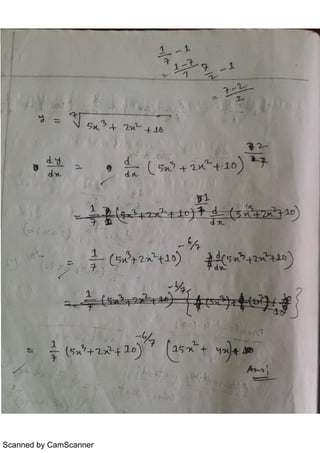 1/7 - 1
= (1-7)/7 7/2 - 1
= (7-2)/2
y = ⁷√(5x³ + 2x² + 10)
dy/dx = d/dx (5x³ + 2x² + 10)
= 1/7 (5x³+2x²+10) d/dx (5x³+2x²+10)
= 1/7 (5x³+2x²+10)^(-6/7) d/dx (5x³+2x²+10)
= 1/7 (5x³+2x²+10)^(-6/7)
= 1/7 (5x³+2x²+10)^(-6/7) (15x² + 4x)
Ans:
Scanned by CamScanner